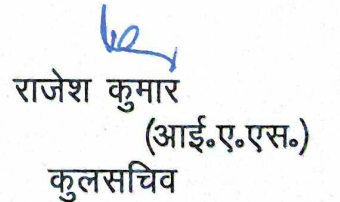 राजेश कुमार
(आई०ए०एस०)
कुलसचिव